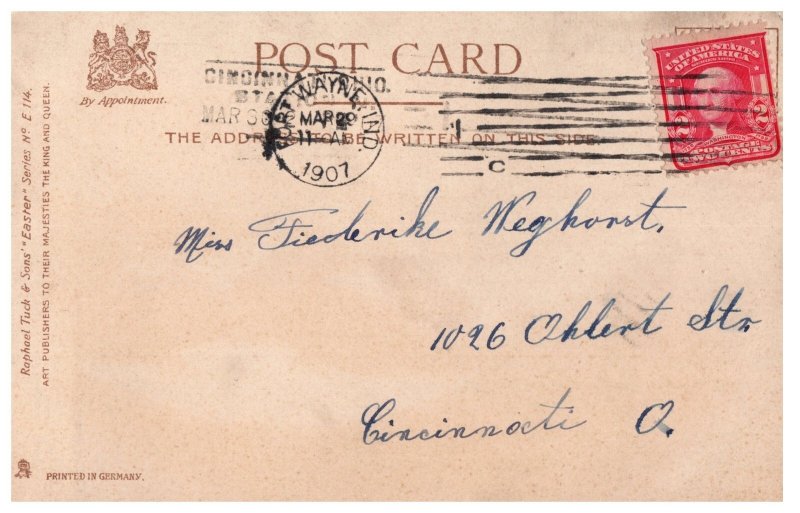 POST CARD
By Appointment.
THE ADDRESS TO BE WRITTEN ON THIS SIDE.
CINCINNATI, OHIO.
STA.
MAR 30
FORT WAYNE, IND.
MAR 29
11 AM
1907
1
C
UNITED STATES
OF AMERICA
2 2
POSTAGE
TWO CENTS
Miss Fiederike Weghorst,
1026 Ohlert Str.
Cincinnati O.
Raphael Tuck & Sons' "Easter" Series No. E 114.
ART PUBLISHERS TO THEIR MAJESTIES THE KING AND QUEEN.
PRINTED IN GERMANY.